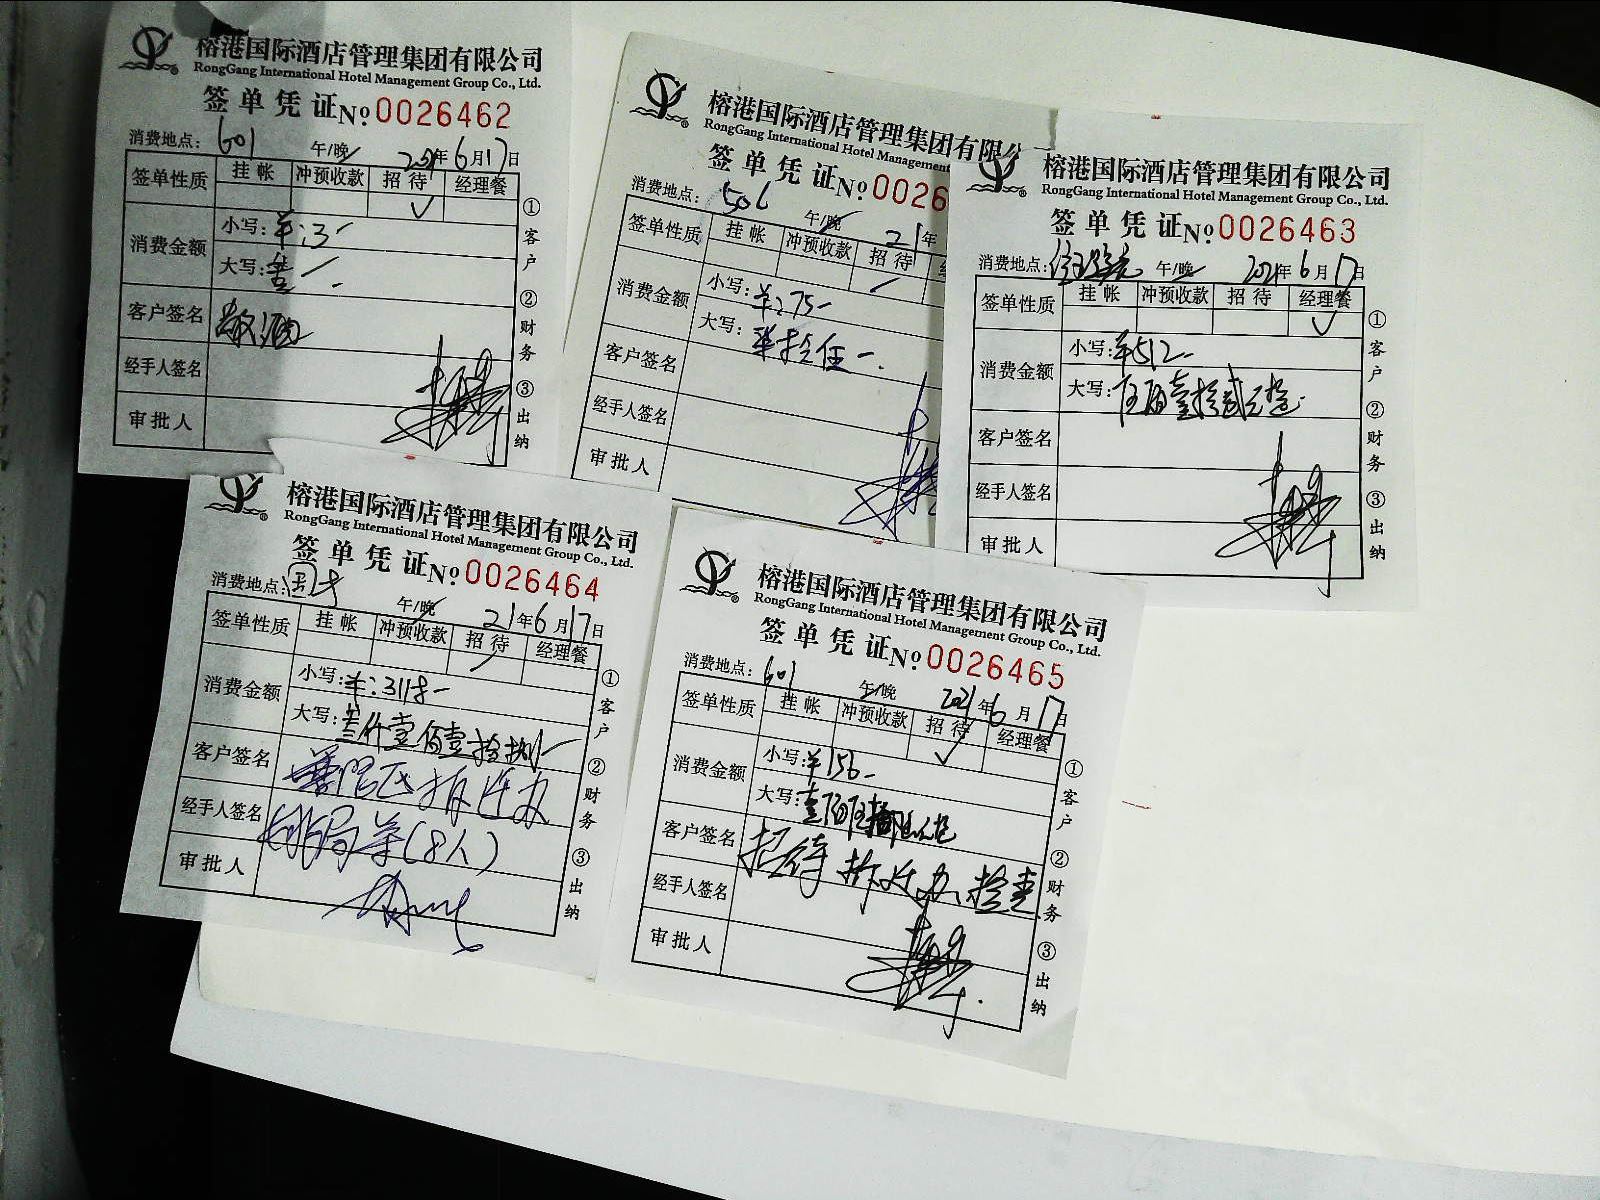 榕港国际酒店管理集团有限公司
RongGang International Hotel Management Group Co., Ltd.
签单凭证 No 0026462
消费地点: 601 午/晚 年 6 月 17 日
签单性质 挂帐 冲预收款 招待 经理餐
✓
消费金额 小写:
大写:
客户签名 敬酒
经手人签名
审批人
①客户 ②财务 ③出纳
榕港国际酒店管理集团有限公
RongGang International Hotel Management
签单凭证 No 0026
消费地点: 506 午/晚 21 年
签单性质 挂帐 冲预收款 招待
消费金额 小写:
大写:
客户签名
经手人签名
审批人
榕港国际酒店管理集团有限公司
RongGang International Hotel Management Group Co., Ltd.
签单凭证 No 0026463
消费地点: 午/晚 2021 年 6 月 17 日
签单性质 挂帐 冲预收款 招待 经理餐
✓
消费金额 小写: ¥512-
大写: 伍佰壹拾贰元整
客户签名
经手人签名
审批人
①客户 ②财务 ③出纳
榕港国际酒店管理集团有限公司
RongGang International Hotel Management Group Co., Ltd.
签单凭证 No 0026464
消费地点: 午/晚 21 年 6 月 17 日
签单性质 挂帐 冲预收款 招待 经理餐
消费金额 小写: ¥:3118-
大写: 叁仟壹佰壹拾捌
客户签名 区拆迁办
经手人签名 局等(8人)
审批人
①客户 ②财务 ③出纳
榕港国际酒店管理集团有限公司
RongGang International Hotel Management Group Co., Ltd.
签单凭证 No 0026465
消费地点: 601 午/晚 2021 年 6 月 17 日
签单性质 挂帐 冲预收款 招待 经理餐
✓
消费金额 小写: ¥156-
大写: 壹佰伍拾
客户签名 招待拆迁办检查
经手人签名
审批人
①客户 ②财务 ③出纳